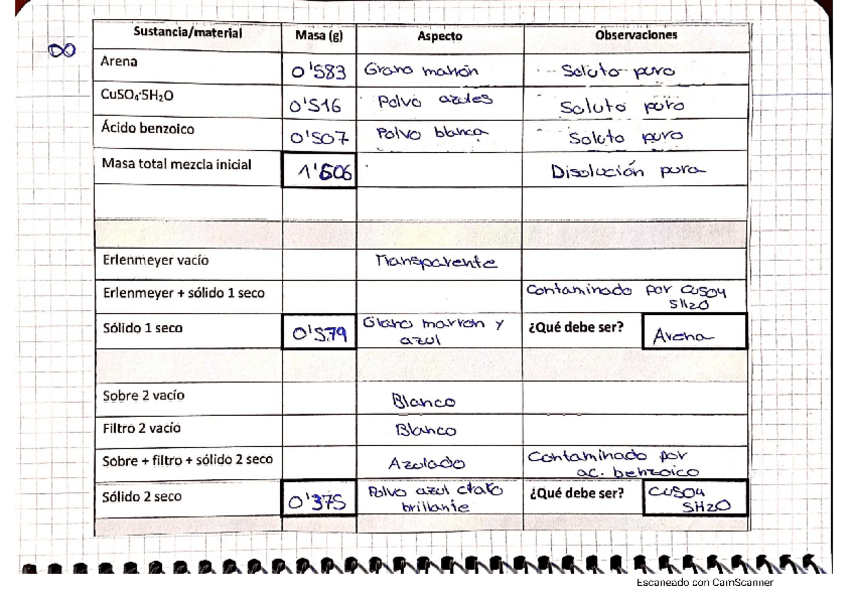 ∞
Sustancia/material Masa (g) Aspecto Observaciones
Arena 0'583 Grano marrón Soluto puro
CuSO₄·5H₂O 0'516 Polvo azules Soluto puro
Ácido benzoico 0'507 Polvo blanca Soluto puro
Masa total mezcla inicial 1'606 Disolución pura
Erlenmeyer vacío Transparente
Erlenmeyer + sólido 1 seco Contaminado por CuSO4
5H2O
Sólido 1 seco 0'579 Grano marron y ¿Qué debe ser? Arena
azul
Sobre 2 vacío Blanco
Filtro 2 vacío Blanco
Sobre + filtro + sólido 2 seco Azulado Contaminado por
ac. benzoico
Sólido 2 seco 0'375 Polvo azul claro ¿Qué debe ser? CuSO4
brillante 5H2O
Escaneado con CamScanner